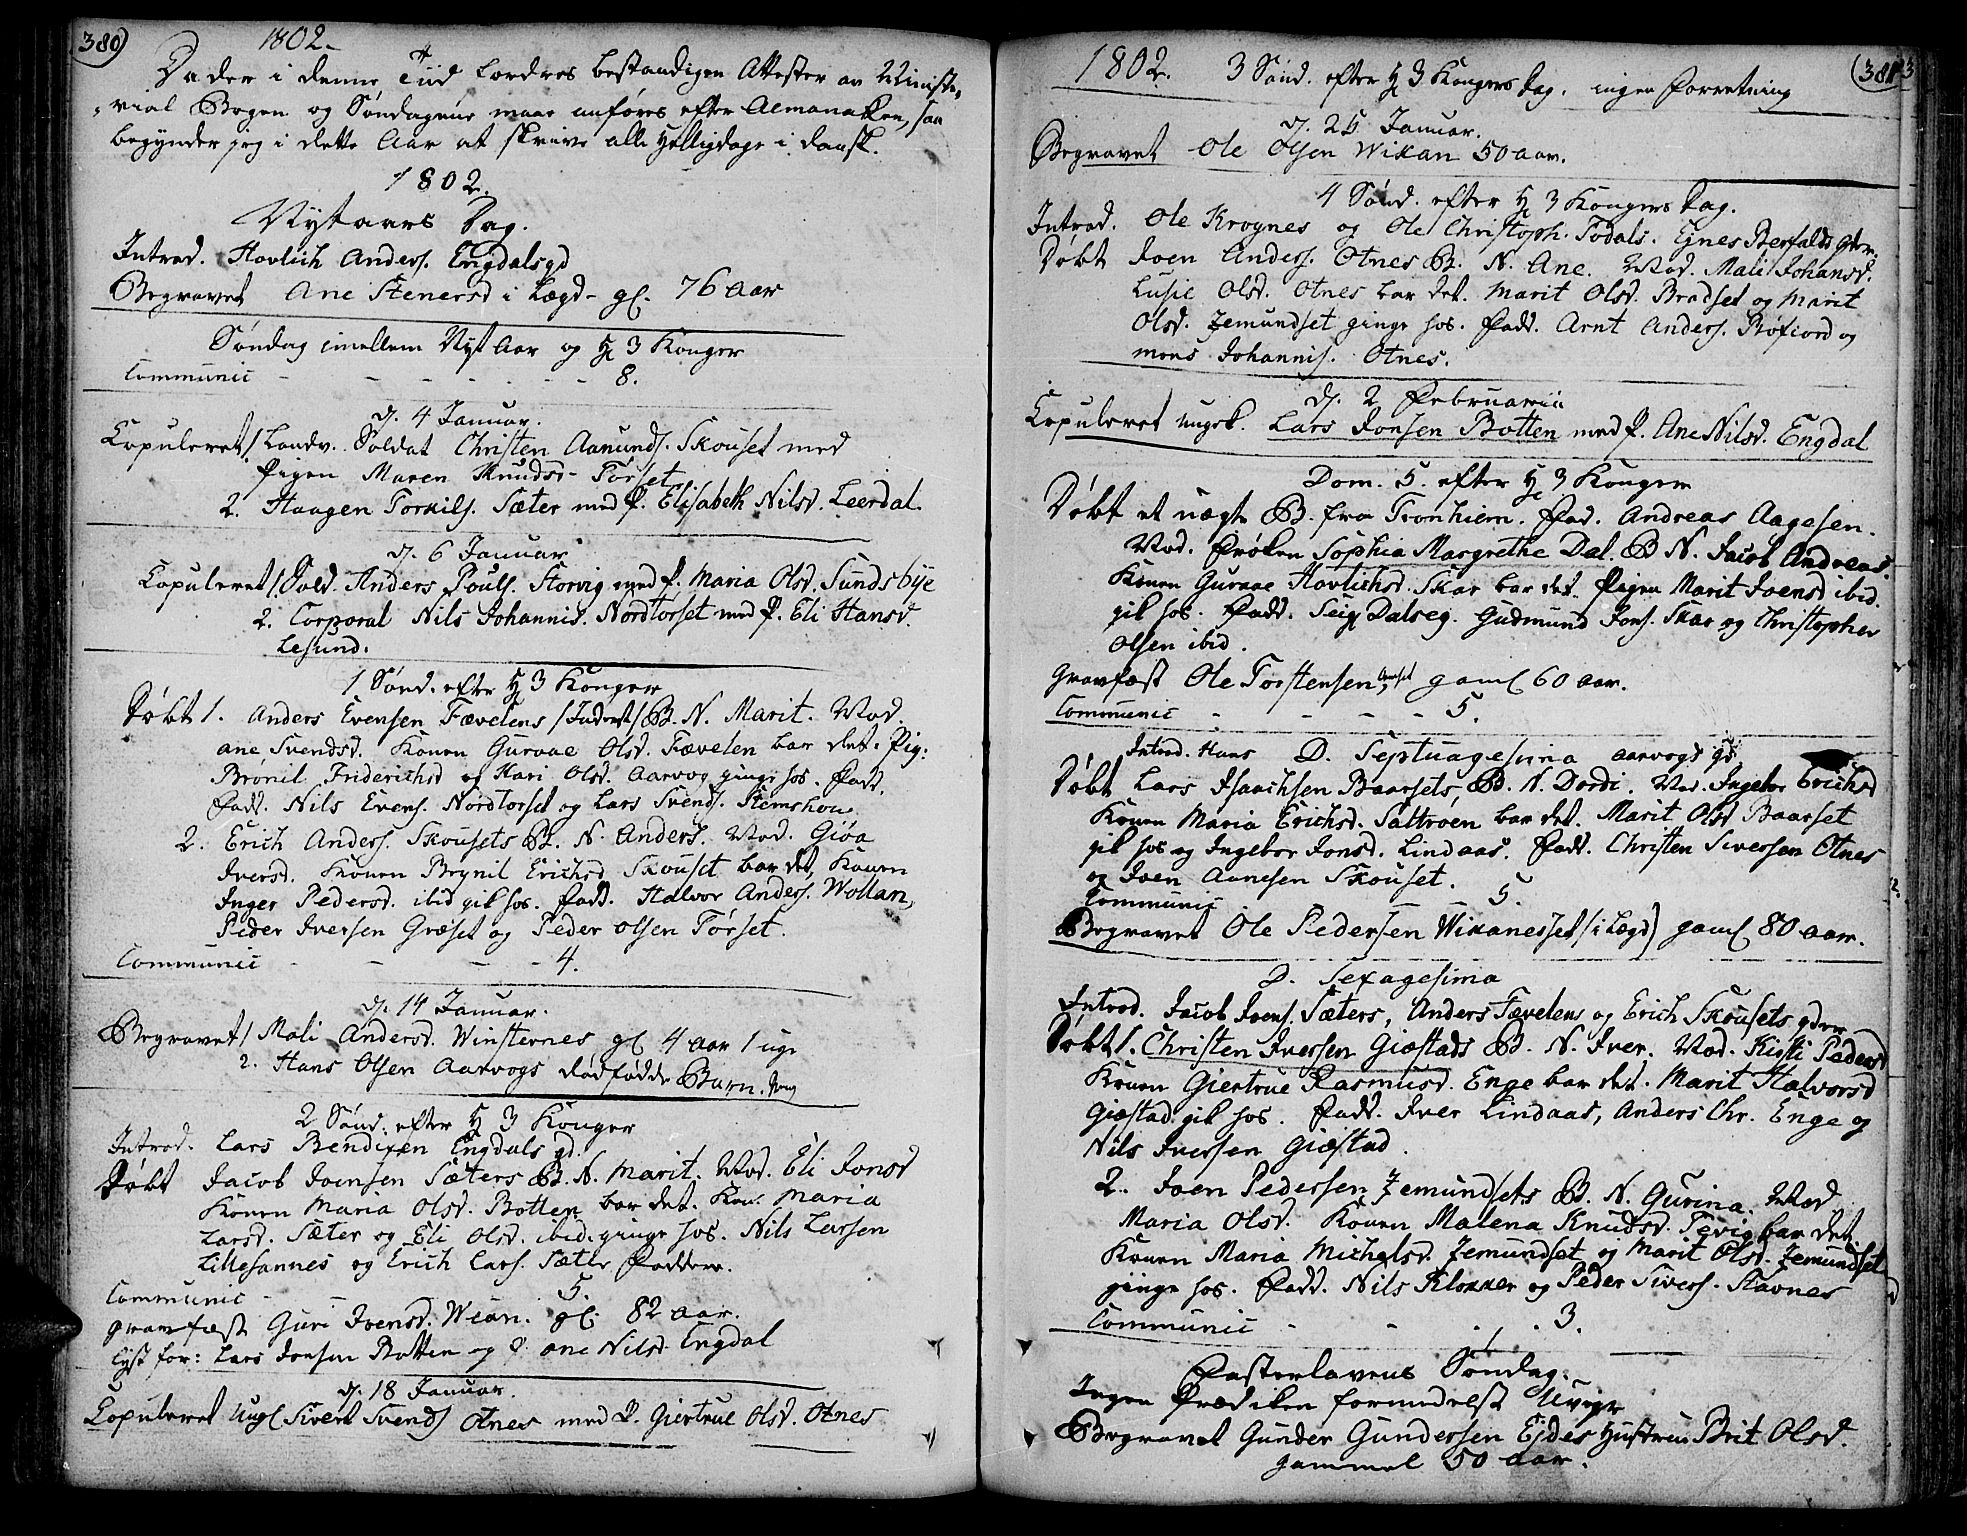 380)
1802.
Da der i denne Tiid fordres bestandigen Attester av Ministe-
rial Bogen og Søndagene maae anføres efter Almanaken, saa
begynder jeg i dette Aar at skrive alle Helligdage i dansk.
1802.
Nytaars Dag.
Introd. Hovlich Anders. Engdalsgd
Begravet Ane Stenersd i Lægd - gl. 76 aar
Søndag imellem Nyt Aar og H 3 Konger
Communic - - - - - - 8.
d. 4 Januar.
Copuleret 1 Landv. Soldat Christen Aamunds. Skouset med
Pigen Maren Knudsd - Torset
2. Haagen Torkils. Sæter med P. Elisabeth Nilsd. Leerdal.
d. 6 Januar
Copuleret 1 Sold. Anders Pouls. Storvig med P. Maria Olsd. Sundsbye
2. Corporal Nils Johannis. Nordtorset med P. Eli Hansd.
Lesund.
1 Sønd. efter H 3 Konger
Døbt 1. Anders Evensen Fævelens /Inderst/ B. N. Marit. Mod.
ane Svendsd. Konen Guruae Olsd. Fævelen bar det. Pig:
Brønil Friderichsd og Kari Olsd. Aarvog ginge hos. Fadd.
Fadd. Nils Evens. Nordtorset og Lars Svends. Stemshou.
2. Erich Anders. Skousets B. N. Anders. Mod. Giøa
Iversd. Konen Brynil Erichsd Skouset bar det, Konen
Inger Pedersd. ibid gik hos. Fadd. Halvor Anders. Wollan,
Peder Iversen Græset og Peder Olsen Tørset.
Communic - - - - 4.
d. 14 Januar.
Begravet 1 Mali Andersd. Winsternes gl 4 aar 1 uge
2. Hans Olsen Aarvogs dødfødde Barn.
2 Sønd. efter H 3 Konger
Introd. Lars Bendixen Engdals gd.
Døbt Jacob Joensen Sæters B. N. Marit. Mod. Eli Jonsd
Konen Maria Olsd. Botten bar det. Kon: Maria
Larsd. Sæter og Eli Olsd. ibid. ginge hos. Nils Larsen
Lillesannes og Erich Lars. Sætter Faddere.
Communic - - - 5.
gravfæst Guri Joensd. Wean. gl. 82 aar.
lyst for: Lars Jonsen Botten og P. ane Nilsd Engdal
d. 18 Januar.
Copuleret Ungk Sivert Svends Otnes med P. Giertrue Olsd. Otnes
1802. 3 Sønd. efter H 3 Kongers Dag. ingen Forretning
(381
d. 25 Januar.
Begravet Ole Olsen Wikan 50 aar.
4 Sønd. efter H 3 Kongers Dag.
Introd. Ole Krognes og Ole Christoph. Todals. Ejnes Berfalds gdr.
Døbt Joen Anders. Otnes B. N. Ane. Mod. Mali Johansd.
Lusie Olsd. Otnes bar det. Marit Olsd. Bradset og Marit
Olsd. Jemundset ginge hos. Fadd. Arnt Anders. Røfiord og
Mons Johannis. Otnes.
d. 2 Februarii
Copuleret ungk. Lars Jonsen Botten med P. Ane Nilsd. Engdal
Dom. 5. efter H 3 Konger
Døbt et uægte B. fra Tronhiem. Fad. Andreas Aagesen.
Mod. Frøken Sophia Margrethe Dal. B N. Jacob Andreas.
Konen Guruae Hovlichsd. Skar bar det. Pigen Marit Joensd ibid.
gik hos. Fadd. Dalseg. Gudmund Jons. Skar og Christopher
Olsen ibid.
gravfæst Ole Torstensen, gaml 60 aar.
Communic - - - - 5.
Introd. Hans D. Septuagesima aarvogs gd.
Døbt Lars Isaachsen Baarsets, B. N. Dordi. Mod. Ingebor Erichsd
Konen Maria Erichsd. Saltroen bar det. Marit Olsd Baarset
gik hos og Ingebor Jonsd. Lindaas. Fadd. Christen Siversen Otnes
og Joen Aanesen Skouset.
Communic 5.
Begravet Ole Pedersen Wikanesset (i Lægd) gaml 80 aar.
D. Sexagesima
Introd. Jacob Joens. Sæters, Anders Fævelens og Erich Skousets gdrr
Døbt 1. Christen Iversen Giøstads B. N. Iver. Mod. Kisti Pedersd
Konen Giertrue Rasmusd. Enge bar det. Marit Halvorsd
Giøstad gik hos. Fadd. Iver Lindaas, Anders Chr. Enge og
Nils Iversen Giæstad.
2. Joen Pedersen Jemundsets B. N. Gurina. Mod
Maria Olsd. Konen Malena Knudsd. Tevig bar det.
Konen Maria Michelsd. Jemundset og Marit Olsd. Jemundset
ginge hos. Fadd. Nils Klokker og Peder Sivers. Stavnes
Communic - - - 3.
Fasterlavens Søndag.
Ingen Prædiken formedelst Uveyr
Begravet Gunder Gundersen Ejdes Hustrue Brit Olsd.
gammel 50 aar.